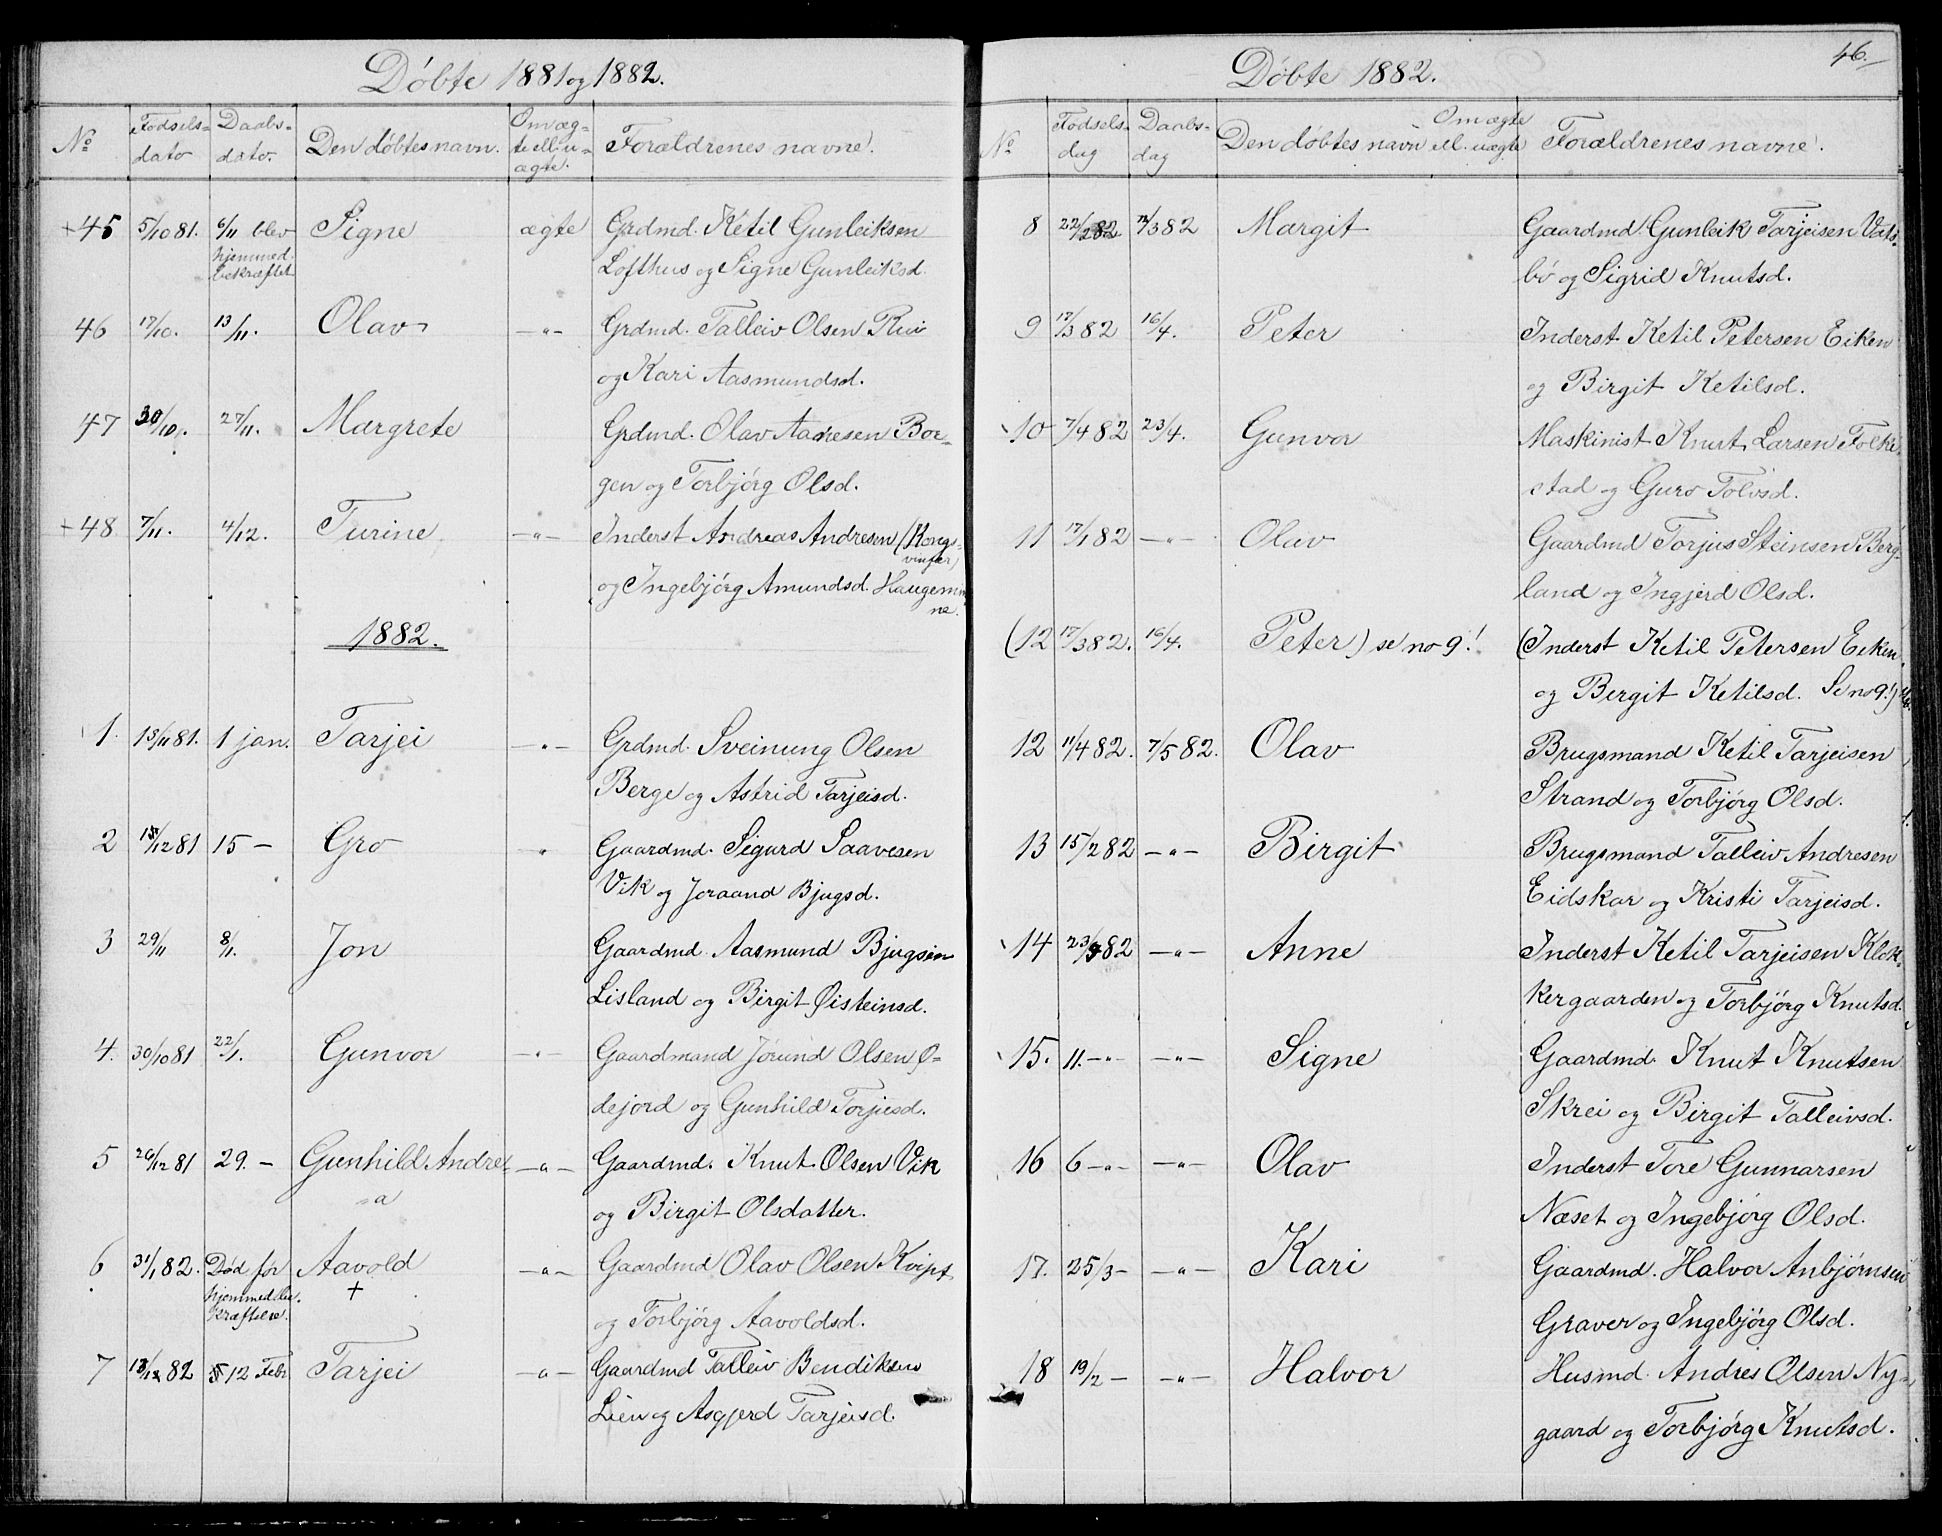 Döbte 1881 og 1882.
No Fødsels- dato Daabs- dato. Den döbtes navn. Om æg- te ell. u- ægte. Forældrenes navne.
+45 5/10 81. 6/11 blev hjemmed. bekræftet Signe ægte Grdmd. Ketil Gunleiksen
Lofthus og Signe Gunleiksd.
46 17/10. 13/11. Olav -"- Grdmd. Talleiv Olsen Rui
og Kari Aasmundsd.
47 30/10. 27/11. Margrete Grdmd. Olav Aanesen Bor-
gen og Torbjörg Olsd.
+48 7/11. 4/12. Turine -"- Inderst Andreas Andresen (Kongs-
vinger)
og Ingebjörg Amundsd. Haugem
ne.
1882.
1. 13/11 81. 1 jan. Tarjei -"- Grdmd. Sveinung Olsen
Berge og Astrid Tarjeisd.
2 /12 81 15 - Gro " Gaardmd. Sigurd Saavesen
Vik og Joraand Bjugsd.
3 29/11 8/1. Jon Gaardmd. Aasmund Bjugsen
Lisland og Birgit Øisteinsd.
4. 30/10 81 22/1. Gunvor -"- Gaardmand Jörund Olsen Ø-
dejord og Gunhild Torjusd.
5 26/12 81 29. - Gunhild Andre- -"- Gaardmd. Knut Olsen Vik
a og Birgit Olsdatter.
6 31/1 82. Död for hjemmedbe- kræftelse. Aavold -"- Gaardmd Olav Olsen Kvipt
+ og Torbjörg Aavoldsd.
7 /12 82 12 Febr Tarjei -"- Gaardmd Talleiv Bendiksens
Lien og Asgjerd Tarjeisd.
46.
Döbte 1882.
No Fødsels- dag Daabs- dag Den döbtes navn Om ægte ell. uægte Forældrenes navne.
8 22/2 82 12/3 82 Margit Gaardmd. Gunleik Tarjeisen Vats-
bö og Sigrid Knutsd.
9 17/3 82 16/4. Peter Inderst Ketil Petersen Eiken
og Birgit Ketilsd.
10 7/4 82 23/4. Gunvor Maskinist Knut Larsen Folke-
stad og Guro Tolvsd.
11 17/1 82 -"- Olav Gaardmd Torjus Steinsen Berg-
land og Ingjerd Olsd.
(12 17/3 82. 16/4. Peter) se no 9! (Inderst Ketil Petersen Eiken
og Birgit Ketilsd. Se no 9!)
12 11/4 82. 7/5 82. Olav Brugsmand Ketil Tarjeisen
Strand og Torbjörg Olsd.
13 15/2 82 -"- Birgit Brugsmand Talleiv Andresen
Eidskar og Kristi Tarjeisd.
14 23/ 82 -"- Anne Inderst Ketil Tarjeisen Klok-
kergaarden og Torbjörg Knutsd.
15. 11. -"- -"- Signe Gaardmd. Knut Knutsen
Skrei og Birgit Talleivsd.
16 6 -"- -"- Olav Inderst Tore Gunnarsen
Næset og Ingebjörg Olsd.
17. 25/3 - -"- Kari Gaardmd. Halvor Anbjörnsen
Graver og Ingebjörg Olsd.
18 19/2 - -"- Halvor Husmd. Andres Olsen Ny-
gaard og Torbjörg Knutsd.